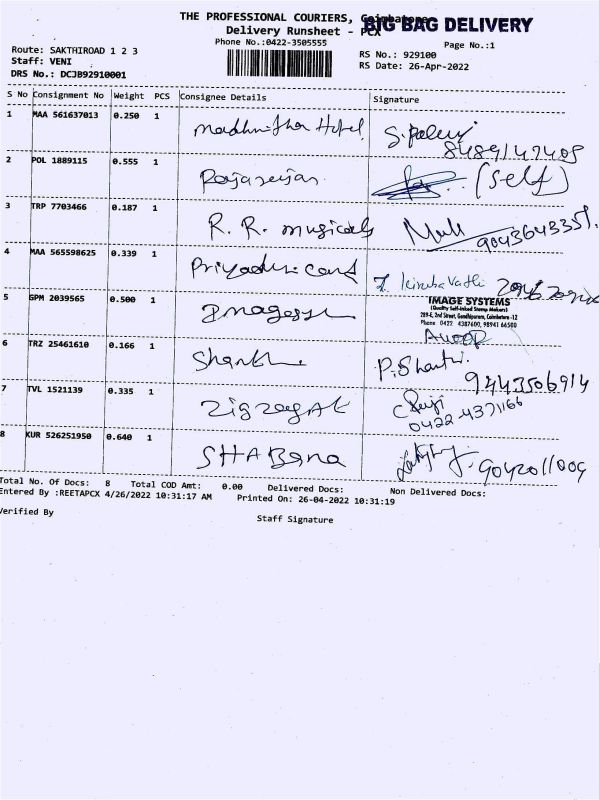 THE PROFESSIONAL COURIERS, Coimbatore
BIG BAG DELIVERY
Delivery Runsheet - PCX
Phone No.:0422-3505555
Page No.:1
Route: SAKTHIROAD 1 2 3
RS No.: 929100
Staff: VENI
RS Date: 26-Apr-2022
DRS No.: DCJB92910001
S No Consignment No Weight PCS Consignee Details Signature
1 MAA 561637013 0.250 1 Hotel
8489147405
2 POL 1889115 0.555 1 (self)
3 TRP 7703466 0.187 1 R. R. musicals
9043643351
4 MAA 565598625 0.339 1 Priyadhri card
5 SPM 2039565 0.500 1
IMAGE SYSTEMS
(Quality Self-Inked Stamp Makers)
289-E, 2nd Street, Gandhipuram, Coimbatore -12
Phone 0422 4387600, 98941 66500
6 TRZ 25461610 0.166 1 Shanthi P. Shanthi
9443506914
7 TVL 1521139 0.335 1 Zigzag
0422-4371166
8 KUR 526251950 0.640 1 SHABana 9042011009
Total No. Of Docs: 8 Total COD Amt: 0.00 Delivered Docs: Non Delivered Docs:
Entered By :REETAPCX 4/26/2022 10:31:17 AM Printed On: 26-04-2022 10:31:19
Verified By
Staff Signature